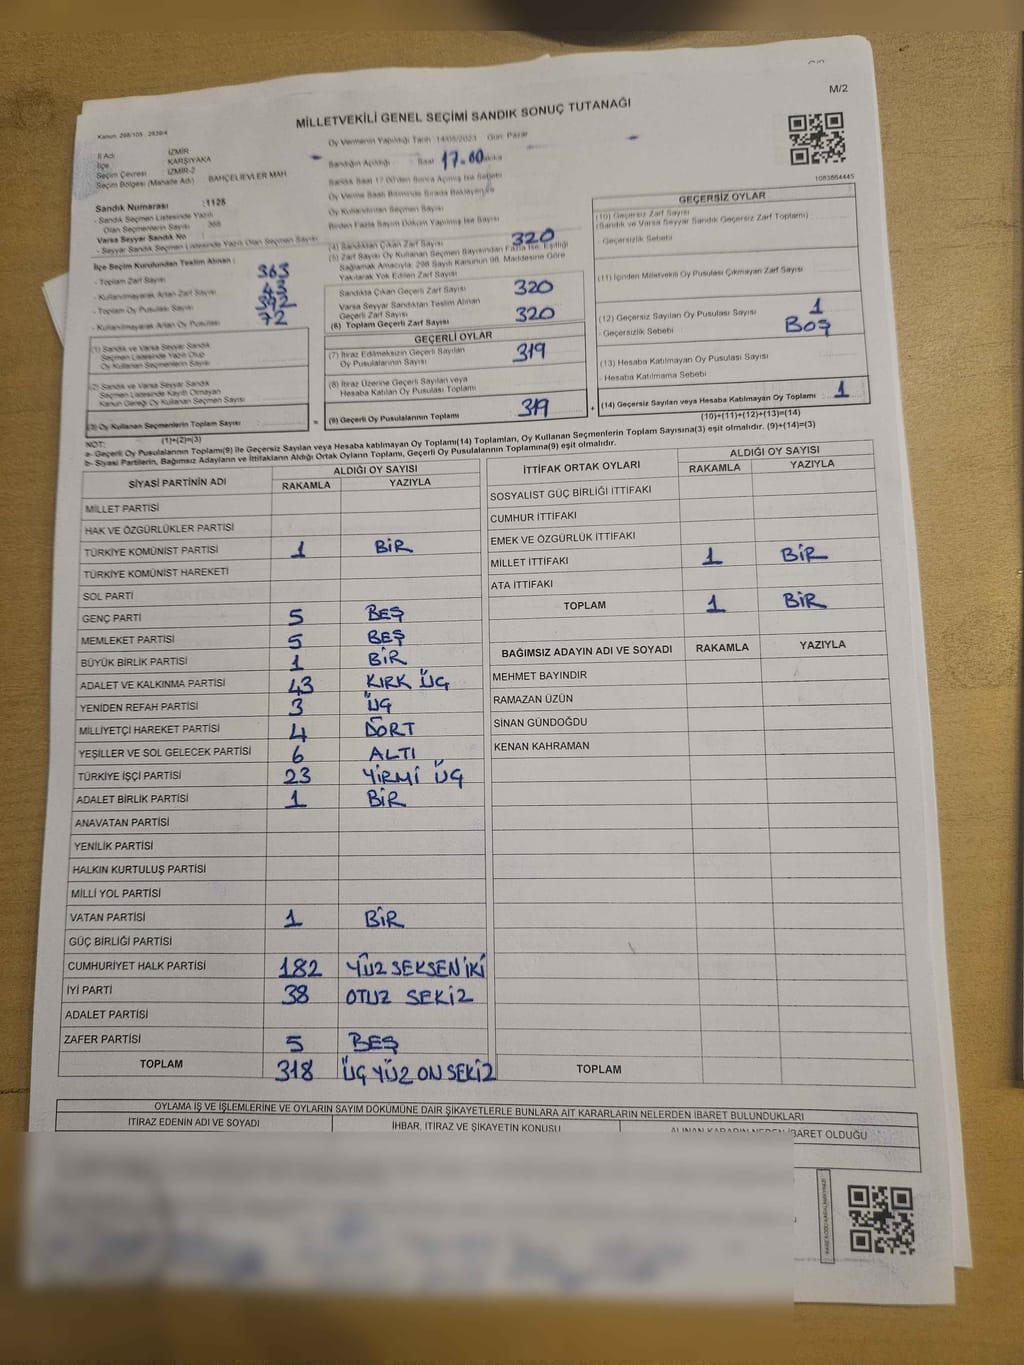 M/2
MİLLETVEKİLİ GENEL SEÇİMİ SANDIK SONUÇ TUTANAĞI
Kanun: 298/105 - 2839/4
İl Adı İZMİR
İlçe KARŞIYAKA
Seçim Çevresi İZMİR-2
Seçim Bölgesi (Mahalle Adı) BAHÇELİEVLER MAH
Sandık Numarası :1128
- Sandık Seçmen Listesinde Yazılı
Olan Seçmenlerin Sayısı
Varsa Seyyar Sandık No
- Seyyar Sandık Seçmen Listesinde Yazılı Olan Seçmen Sayısı
İlçe Seçim Kurulundan Teslim Alınan :
- Toplam Zarf Sayısı 363
- Kullanılmayarak Artan Zarf Sayısı 43
- Toplam Oy Pusulası Sayısı 392
- Kullanılmayarak Artan Oy Pusulası 72
(1) Sandık ve Varsa Seyyar Sandık
Seçmen Listesinde Yazılı Olup
Oy Kullanan Seçmenlerin Sayısı
(2) Sandık ve Varsa Seyyar Sandık
Seçmen Listesinde Kayıtlı Olmayan
Kanun Gereği Oy Kullanan Seçmen Sayısı
(3) Oy Kullanan Seçmenlerin Toplam Sayısı =
Oy Vermenin Yapıldığı Tarih 14/05/2023 Gün: Pazar
Sandığın Açıldığı Saat 17.00
Oy Kullanılan Seçmen Sayısı
(4) Sandıktan Çıkan Zarf Sayısı 320
(5) Zarf Sayısı Oy Kullanan Seçmen Sayısından Fazla İse, Eşitliği
Sağlamak Amacıyla, 298 Sayılı Kanunun 98. Maddesine Göre
Yakılarak Yok Edilen Zarf Sayısı
Sandıkta Çıkan Geçerli Zarf Sayısı 320
Varsa Seyyar Sandıktan Teslim Alınan
Geçerli Zarf Sayısı 320
(6) Toplam Geçerli Zarf Sayısı
GEÇERLİ OYLAR
(7) İtiraz Edilmeksizin Geçerli Sayılan
Oy Pusulalarının Sayısı 319
(8) İtiraz Üzerine Geçerli Sayılan veya
Hesaba Katılan Oy Pusulası Toplamı
(9) Geçerli Oy Pusulalarının Toplamı 319 +
1083664445
GEÇERSİZ OYLAR
(10) Geçersiz Zarf Sayısı
(Sandık ve Varsa Seyyar Sandık Geçersiz Zarf Toplamı)
- Geçersizlik Sebebi
(11) İçinden Milletvekili Oy Pusulası Çıkmayan Zarf Sayısı
(12) Geçersiz Sayılan Oy Pusulası Sayısı 1
- Geçersizlik Sebebi BOŞ
(13) Hesaba Katılmayan Oy Pusulası Sayısı
- Hesaba Katılmama Sebebi
(14) Geçersiz Sayılan veya Hesaba Katılmayan Oy Toplamı 1
NOT: (1)+(2)=(3) (10)+(11)+(12)+(13)=(14)
a- Geçerli Oy Pusulalarının Toplamı(9) ile Geçersiz Sayılan veya Hesaba katılmayan Oy Toplamı(14) Toplamları, Oy Kullanan Seçmenlerin Toplam Sayısına(3) eşit olmalıdır. (9)+(14)=(3)
b- Siyasi Partilerin, Bağımsız Adayların ve İttifakların Aldığı Ortak Oyların Toplamı, Geçerli Oy Pusulalarının Toplamına(9) eşit olmalıdır.
SİYASİ PARTİNİN ADI ALDIĞI OY SAYISI
RAKAMLA YAZIYLA
MİLLET PARTİSİ
HAK VE ÖZGÜRLÜKLER PARTİSİ
TÜRKİYE KOMÜNİST PARTİSİ 1 BİR
TÜRKİYE KOMÜNİST HAREKETİ
SOL PARTİ
GENÇ PARTİ 5 BEŞ
MEMLEKET PARTİSİ 5 BEŞ
BÜYÜK BİRLİK PARTİSİ 1 BİR
ADALET VE KALKINMA PARTİSİ 43 KIRK ÜÇ
YENİDEN REFAH PARTİSİ 3 ÜÇ
MİLLİYETÇİ HAREKET PARTİSİ 4 DÖRT
YEŞİLLER VE SOL GELECEK PARTİSİ 6 ALTI
TÜRKİYE İŞÇİ PARTİSİ 23 YİRMİ ÜÇ
ADALET BİRLİK PARTİSİ 1 BİR
ANAVATAN PARTİSİ
YENİLİK PARTİSİ
HALKIN KURTULUŞ PARTİSİ
MİLLİ YOL PARTİSİ
VATAN PARTİSİ 1 BİR
GÜÇ BİRLİĞİ PARTİSİ
CUMHURİYET HALK PARTİSİ 182 YÜZ SEKSEN İKİ
İYİ PARTİ 38 OTUZ SEKİZ
ADALET PARTİSİ
ZAFER PARTİSİ 5 BEŞ
TOPLAM 318 ÜÇ YÜZ ON SEKİZ
İTTİFAK ORTAK OYLARI ALDIĞI OY SAYISI
RAKAMLA YAZIYLA
SOSYALİST GÜÇ BİRLİĞİ İTTİFAKI
CUMHUR İTTİFAKI
EMEK VE ÖZGÜRLÜK İTTİFAKI
MİLLET İTTİFAKI 1 BİR
ATA İTTİFAKI
TOPLAM 1 BİR
BAĞIMSIZ ADAYIN ADI VE SOYADI RAKAMLA YAZIYLA
MEHMET BAYINDIR
RAMAZAN ÜZÜN
SİNAN GÜNDOĞDU
KENAN KAHRAMAN
TOPLAM
OYLAMA İŞ VE İŞLEMLERİNE VE OYLARIN SAYIM DÖKÜMÜNE DAİR ŞİKAYETLERLE BUNLARA AİT KARARLARIN NELERDEN İBARET BULUNDUKLARI
İTİRAZ EDENİN ADI VE SOYADI İHBAR, İTİRAZ VE ŞİKAYETİN KONUSU ALINAN KARARIN NEDEN İBARET OLDUĞU